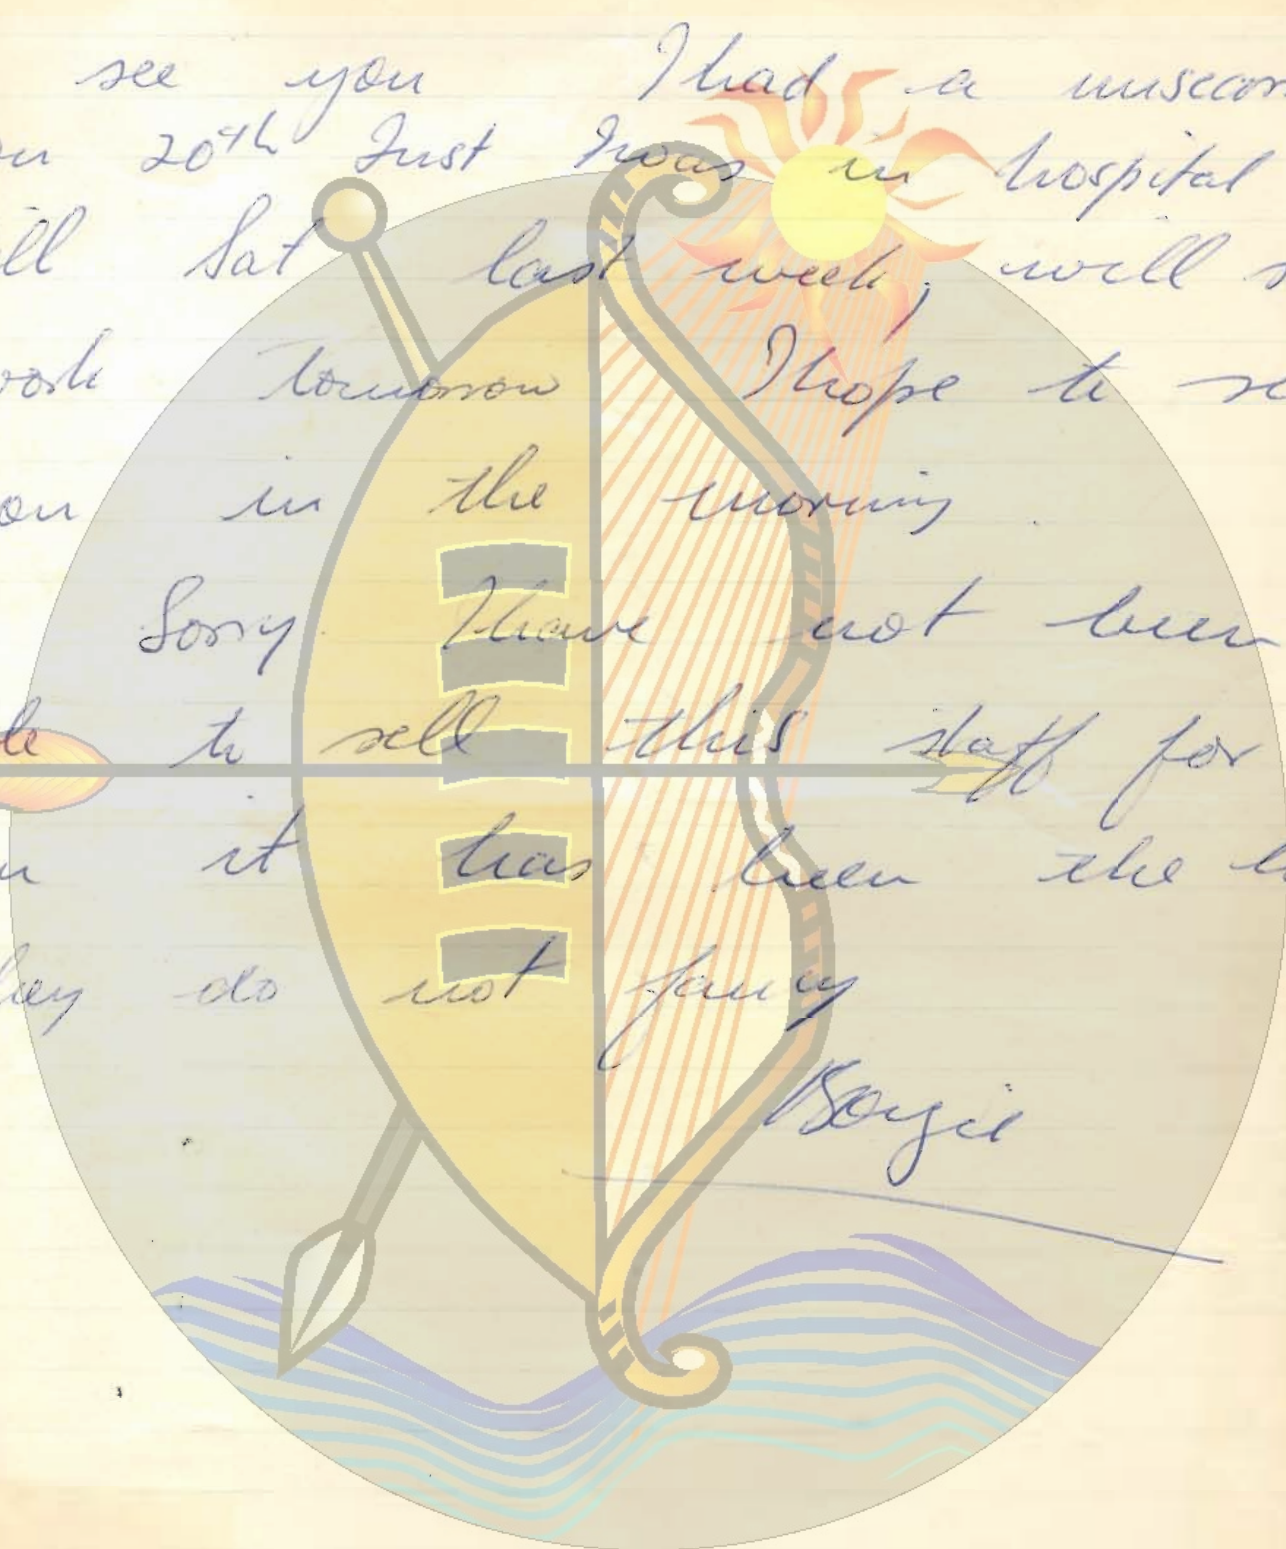 see you I had a miscarr
on 20th Inst I was in hospital
ill Sat last week, will s
work tomorrow I hope to se
ou in the morning.
Sorry I have not been
le to sell this staff for
u it has been the l
hey do not fancy